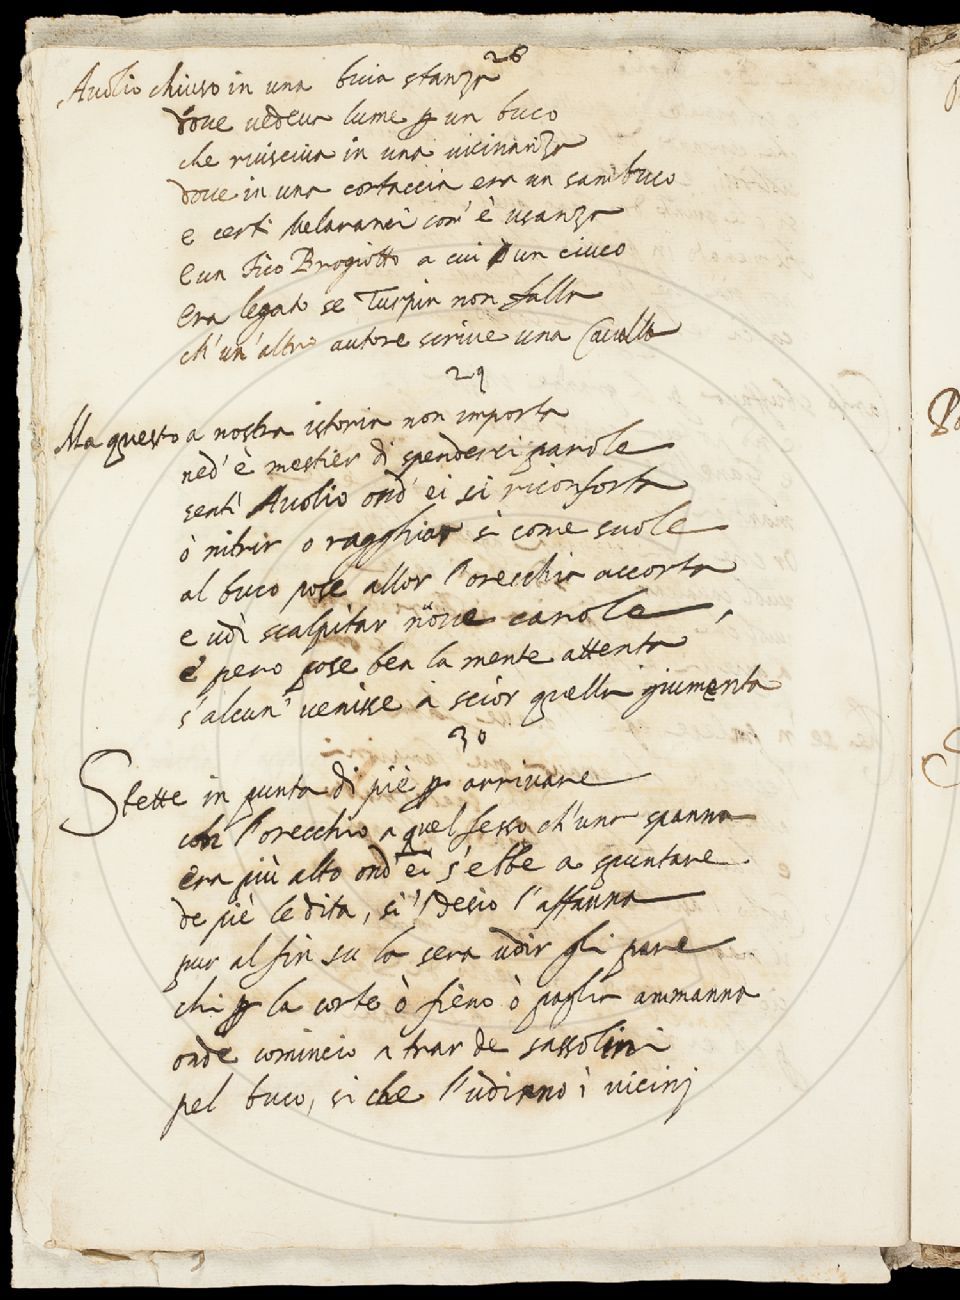 28
Avolio chiuso in una buia stanza
dove vedeva lume p un buco
che riusciva in una vicinanza
dove in una cortaccia era un sambuco
e certi melaranci com' è usanza
e un Fico Brogiotto a cui un ciuco
era legato se Turpin non falla
ch'un'altro autore scrive una Cavalla
29
Ma questo a nostra istoria non importa
ned' è mestier di spenderci parole
sentì Avolio ond' ei si riconforta
ò nitrir o ragghiar si come suole
al buco pose allor l'orecchia accorta
e udì scalpitar nove carole,
e però pose ben la mente attenta
s'alcun' venisse a scior quella giumenta
30
Stette in punta di piè p arrivare
con l'orecchio a quel fesso ch'una spanna
era più alto ond' ei s'ebbe a spuntare
de piè le dita, si 'l desio l'affanna
pur al fin su la sera udir gli pare
chi p la corte ò fieno ò paglia ammanna
onde cominciò a trar de sassolini
pel buco, si che l'udirno i vicinj